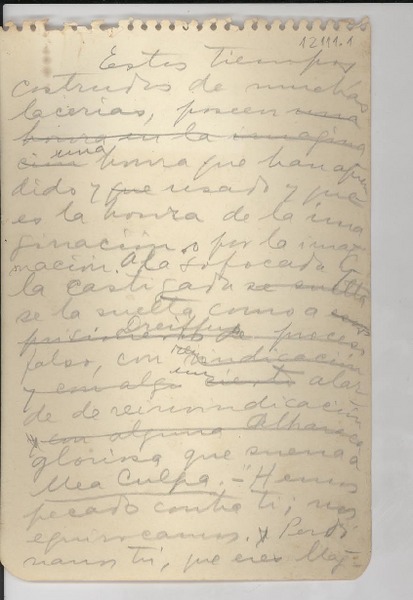 12111.1
Estos tiempos
costrudos de muchas
lacerias, poseen una
honra en la imagina
ción una honra que han apren
dido y que usado y que
es la honra de la ima
ginación o por la imagi
nación. A la sofocada
la castigada se
se la suelta como a
prisionero de proceso
Dreiffus
falso, con reivindicación
y con algo un alar
de de reivindicación
y con alguna Alharaca
gloriosa que suena a
Mea Culpa. - "Hemos
pecado contra ti; nos
equivocamos. y Perdó
nanos tú, que eres Mag-